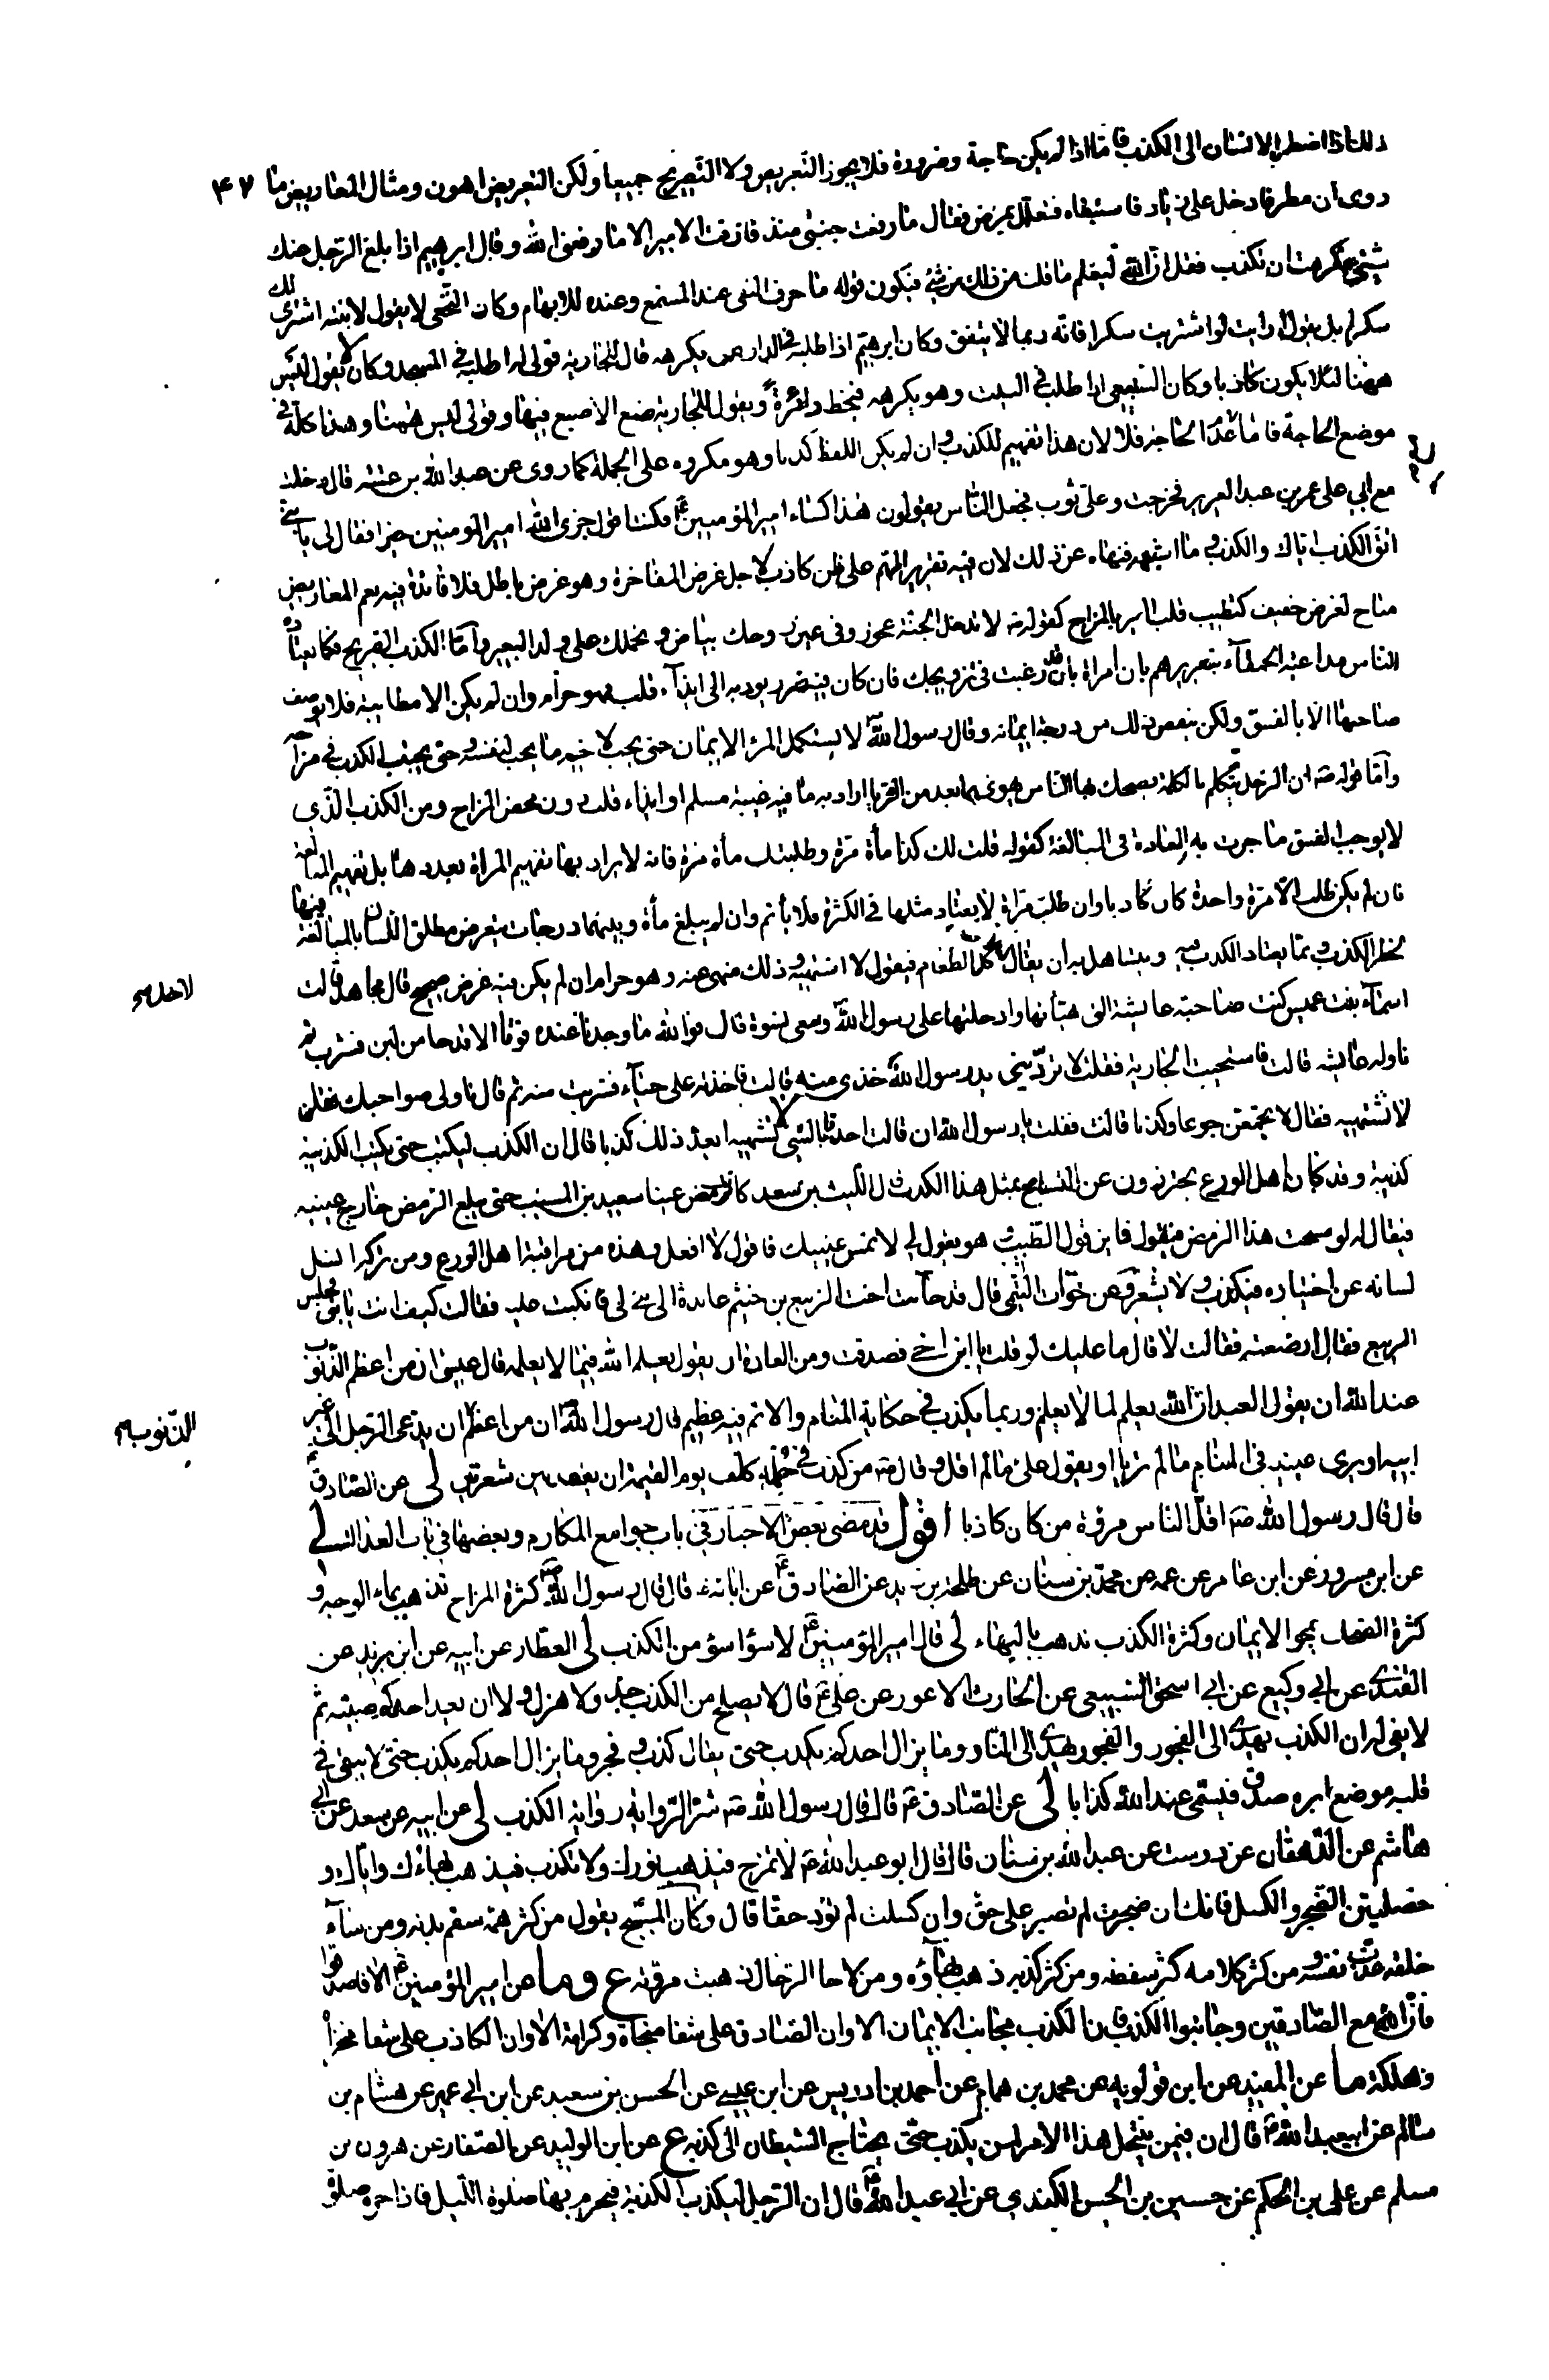 ذلك اذا اضطر الانسان الى الكذب فامّا اذا لم يكن حاجة وضرورة فلا يجوز التعريض ولا التصريح جميعا ولكن التعريض اهون ومثال المعاريض ما ۴۷
روى ان مطرفا دخل على زياد فاستبطاه فتعلل بمرض فقال ما رفعت جنبى منذ فارقت الامير الا ما رفعنى الله وقال ابرهيم اذا بلغ الرجل عنك
شيئ فكرهت ان تكذب فقل ان الله ليعلم ما قلت من ذلك من شئ فيكون قوله ما حرف النفى عند المستمع وعنده للابهام وكان النخعى لا يقول لابنته اشترى لك
سكرا بل يقول ارايت لو اشتريت سكرا فانه ربما لا يتفق وكان ابرهيم اذا طلبه فى الدار من يكرهه قال للجارية قولى له اطلبه فى المسجد وكان لا يقول ليس
ههنا لئلا يكون كاذبا وكان الشعبى اذا طلب فى البيت وهو يكرهه فيخط دائرة ويقول للجارية ضع الاصبع فيها وقولى ليس ههنا وهذا كله فى
موضع الحاجة فاما عند الحاجة فلا لان هذا تفهيم للكذب وان لم يكن اللفظ كذبا وهو مكروه على الجملة كما روى عن عبدالله بن عتبة قال دخلت
مع ابي على عمر بن عبد العزيز فخرجت وعلى ثوب فجعل الناس يقولون هذا كساء امير المؤمنين فكنت اقول جزى الله امير المؤمنين خيرا فقال لى يا بنى
اتق الكذب اياك والكذب وما اشبهه فنهاه عن ذلك لان فيه تقرير لهم على ظن كاذب لاجل غرض المفاخرة وهو غرض باطل فلا فائدة فيه نعم المعاريض
مباح لغرض خفيف كتطييب قلب الغير بالمزاح كقوله ص لا تدخل الجنة عجوز وفى عين زوجك بياض ونحملك على ولد البعير وامّا الكذب الصريح فكما يعتاده
الناس من مداعبة الحمقاء بتغريرهم بان امراة قد رغبت فى تزويجك فان كان فيه ضرر يودى الى ايذاء قلب فهو حرام وان لم يكن الا مطايبة فلا يوصف
صاحبها الا بالفسق ولكن ينقص ذلك من درجة ايمانه وقال رسول الله لا يستكمل المرء الايمان حتى يحب لاخيه ما يحب لنفسه وحتى يجتنب الكذب فى مزاحه
وامّا قوله ص ان الرجل ليتكلم بالكلمة يضحك بها الناس يهوى بها ابعد من الثريا اراد به ما فيه غيبة مسلم او ايذاء قلب دون محض المزاح ومن الكذب الذى
لا يوجب الفسق ما جرت به العادة فى المبالغة كقوله قلت لك كذا مأة مرة وطلبتك مأة مرة فانه لا يراد بها تفهيم المراة بعددها بل تفهيم المبالغة
فان لم يكن طلبه الا مرة واحدة كان كاذبا وان طلب مرات لا يعتاد مثلها فى الكثرة فلا يأثم وان لم يبلغ مأة وبينهما درجات يتعرض مطلق اللسان بالمبالغة فيها
لخطر الكذب ومما يعتاد الكذب فيه ويتساهل به ان يقال كل الطعام فيقول لا اشتهيه وذلك منهى عنه وهو حرام ان لم يكن فيه غرض صحيح قال مجاهد قالت
اسماء بنت عميس كنت صاحبة عايشة التى هيأتها وادخلتها على رسول الله ومعى نسوة قال فوالله ما وجدنا عنده قوتا الا قدحا من لبن فشرب ثم
ناوله عايشه قالت فاستحيت الجارية فقلت لا تردين يد رسول الله خذى منه قالت فاخذته على حياء فشربت منه ثم قال ناولى صواحبك فقلن
لا نشتهيه فقال لا تجمعن جوعا وكذبا قالت فقلت يا رسول الله ان قالت احدينا لشئ نشتهيه لا نشتهيه ايعد ذلك كذبا قال ان الكذب ليكتب حتى يكتب الكذيبة
كذيبة وقد كان اهل الورع يحترزون عن التسامح بمثل هذا الكذب قال الليث بن سعد كانت ترمض عينا سعيد بن المسيب حتى يبلغ الرمض خارج عينيه
فيقال له لو مسحت هذا الرمض فيقول فاين قول الطبيب وهو يقول لى لا تمس عينيك فاقول لا افعل وهذه من مراقبة اهل الورع ومن تركه انسل
لسانه عن اختياره فيكذب ولا يشعر وعن خوات التيمى قال قد جآءت اخت الربيع بن خثيم عائدة الى بنى لى فانكبت عليه فقالت كيف انت يا بنى فجلس
الربيع فقال ارضعته فقالت لا قال ما عليك لو قلت يا ابن اخى فصدقت ومن العادة ان يقول يعلم الله فيما لا يعلمه قال عيسى ان من اعظم الذنوب
عند الله ان يقول العبد ان الله يعلم لما لا يعلم وربما يكذب فى حكاية المنام والاثم فيه عظيم قال رسول الله ان من اعظم ان يدعى الرجل الى غير
ابيه او يرى عينيه فى المنام ما لم تريا او يقول على ما لم اقل وقال ص من كذب فى حلمه كلف يوم القيمة ان يعقد بين شعرتين لى عن الصادق
قال قال رسول الله ص اقل الناس مروة من كان كاذبا اقول قد مضى بعض الاخبار فى باب جوامع المكارم وبعضها فى باب العدالة لى
عن ابن مسرور عن ابن عامر عن عمه عن محمد بن سنان عن طلحة بن زيد عن الصادق عن ابائه قال قال رسول الله كثرة المزاح تذهب بماء الوجه و
كثرة الضحك يمحوا الايمان وكثرة الكذب تذهب بالبهاء لى قال امير المؤمنين لا سوأ اسوء من الكذب لى العطار عن ابيه عن ابن يزيد عن
القندى عن ابي وكيع عن ابي اسحق السبيعى عن الحارث الاعور عن على ع قال لا يصلح من الكذب جد ولا هزل ولا ان يعد احدكم صبيه ثم
لا يفى له ان الكذب يهدى الى الفجور والفجور يهدى الى النار وما يزال احدكم يكذب حتى يقال كذب وفجر وما يزال احدكم يكذب حتى لا يبقى فى
قلبه موضع ابرة صدق فيسمى عند الله كذابا لى عن الصادق ع قال قال رسول الله ص شر الرواية رواية الكذب لى عن ابيه عن سعد عن ابي
هاشم عن الدهقان عن درست عن عبدالله بن سنان قال قال ابو عبدالله ع لا تمزح فيذهب نورك ولا تكذب فيذهب بهاءك واياك و
خصلتين الضجر والكسل فانك ان ضجرت لم تصبر على حق وان كسلت لم تؤد حقا قال وكان المسيح يقول من كثر همه سقم بدنه ومن ساء
خلقه عذب نفسه ومن كثر كلامه كثر سقطه ومن كثر كذبه ذهب بهاؤه ومن لاحا الرجال ذهبت مروته ع وما عن امير المؤمنين الا فاصدقوا
فان الله مع الصادقين وجانبوا الكذب فان الكذب مجانب الايمان الا وان الصادق على شفا منجاة وكرامة الا وان الكاذب على شفا مخزاة
وهلكة ما عن المفيد عن ابن قولويه عن محمد بن همام عن احمد بن ادريس عن ابن عيسى عن الحسن بن سعيد عن ابن ابي عمير عن هشام بن
سالم عن ابيعبدالله قال ان فيمن ينتحل هذا الامر لمن يكذب حتى يحتاج الشيطان الى كذبه ع عن ابن الوليد عن الصفار عن هرون بن
مسلم عن على بن الحكم عن حسين بن الحسن الكندى عن ابي عبدالله قال ان الرجل ليكذب الكذبة فيحرم بها صلوة الليل فاذا حرم صلوة
الذنوب